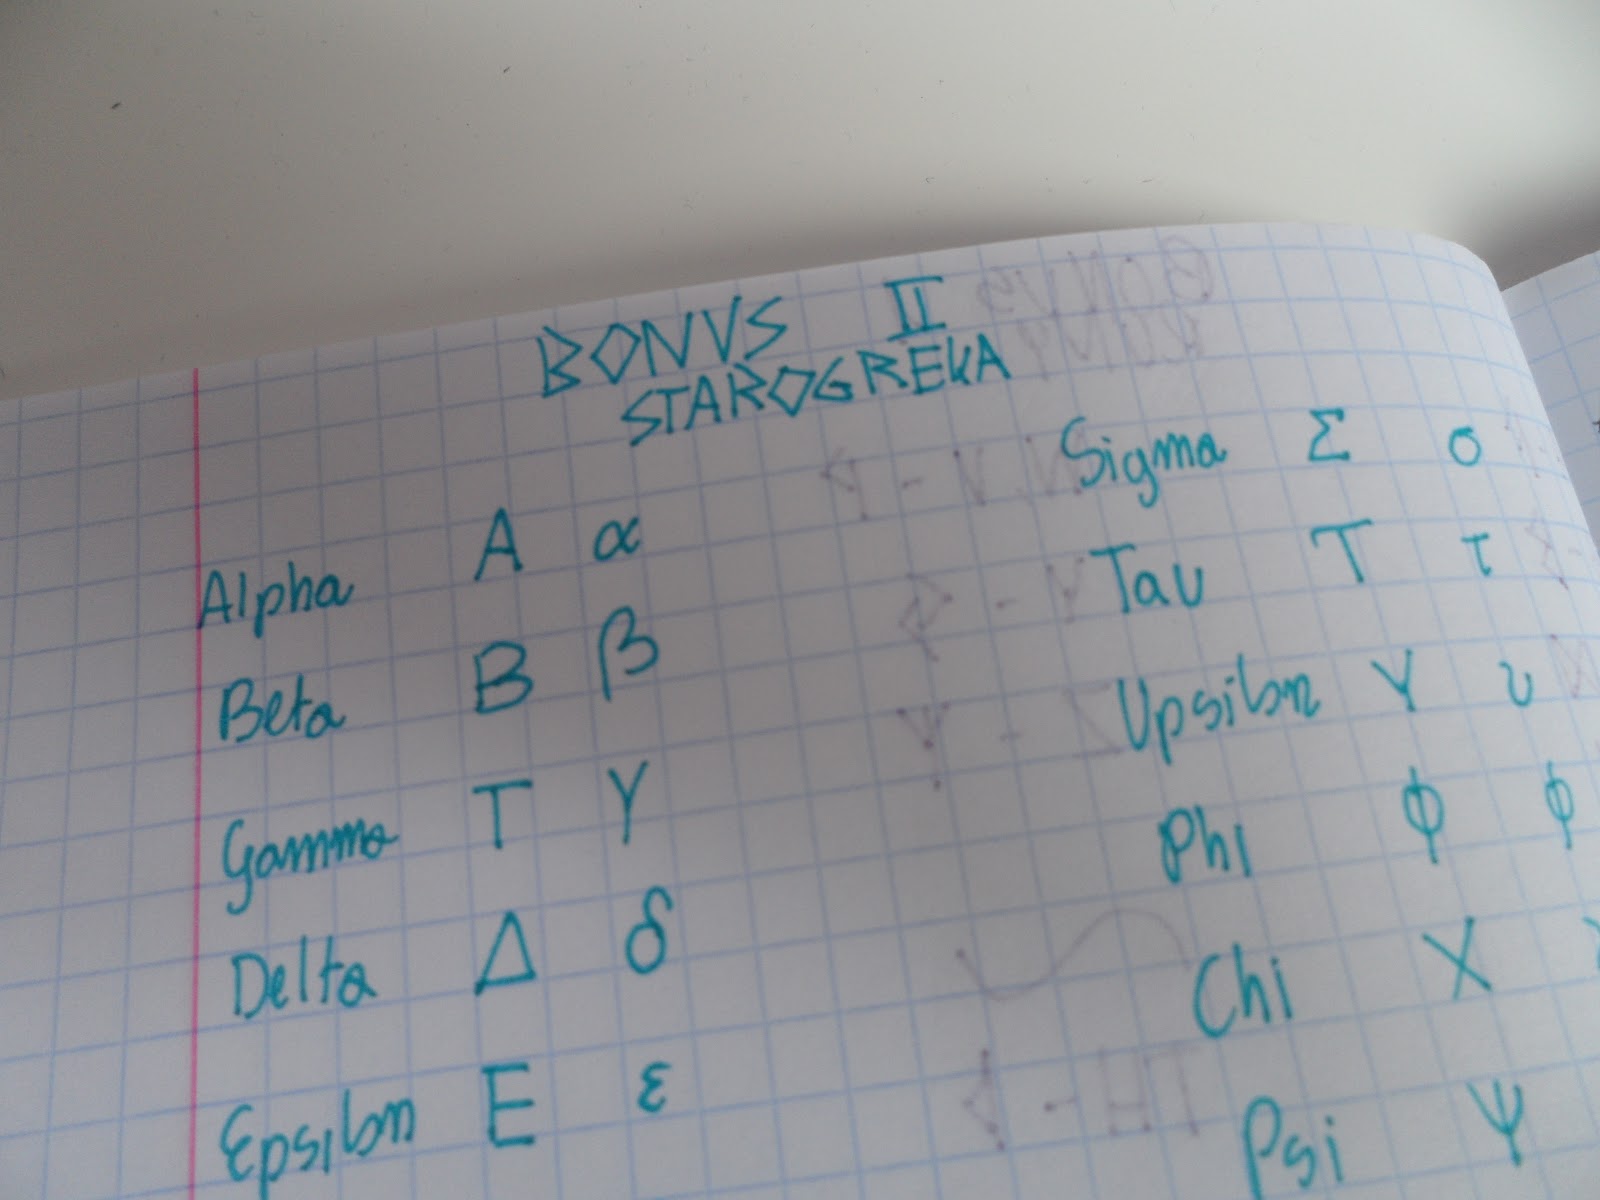 BONVS II
STAROGREKA
Alpha A α
Beta B β
Gamma T γ
Delta Δ δ
Epsilon E ε
Sigma Σ σ
Tau T τ
Upsilon Υ υ
Phi Φ φ
Chi X
Psi Ψ